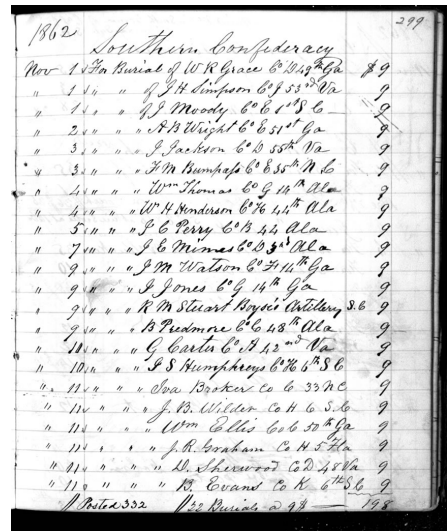 299
1862
Southern Confederacy
Nov 1 " For Burial of W R Grace Co D 49th Ga $ 9
" 1 " " " of J H Simpson Co J 53rd Va 9
" 1 " " " of J Moody Co E 1st S C 9
" 2 " " " A B Wright Co E 51st Ga 9
" 3 " " " J Jackson Co D 55th Va 9
" 3 " " " H M Bumpass Co E 35th N C 9
" 4 " " " Wm Thomas Co G 14th Ala 9
" 4 " " " W H Henderson Co H 44th Ala 9
" 5 " " " J C Perry Co B 44 Ala 9
" 7 " " " J E Mimes Co D 3rd Ala 9
" 9 " " " J M Watson Co H 14th Ga 9
" 9 " " " J Jones Co G 14th Ga 9
" 9 " " " R M Stuart Artillery S.C 9
" 9 " " " B Predmore Co C 48th Ala 9
" 10 " " " G Carter Co A 42nd Va 9
" 10 " " " J S Humphreys Co H 6th S C 9
" 11 " " " Iva Broker Co C 33 NC 9
" 11 " " " J. B. Wilder Co H 6 S.C 9
" 11 " " " Wm Ellis Co C 50th Ga 9
" 11 " " " J. R. Graham Co H 5 Fla 9
" 11 " " " D. Sherwood Co D 48 Va 9
" 11 " " " B. Evans Co K 6th S C 9
Posted 332 22 Burials a 9$ 198